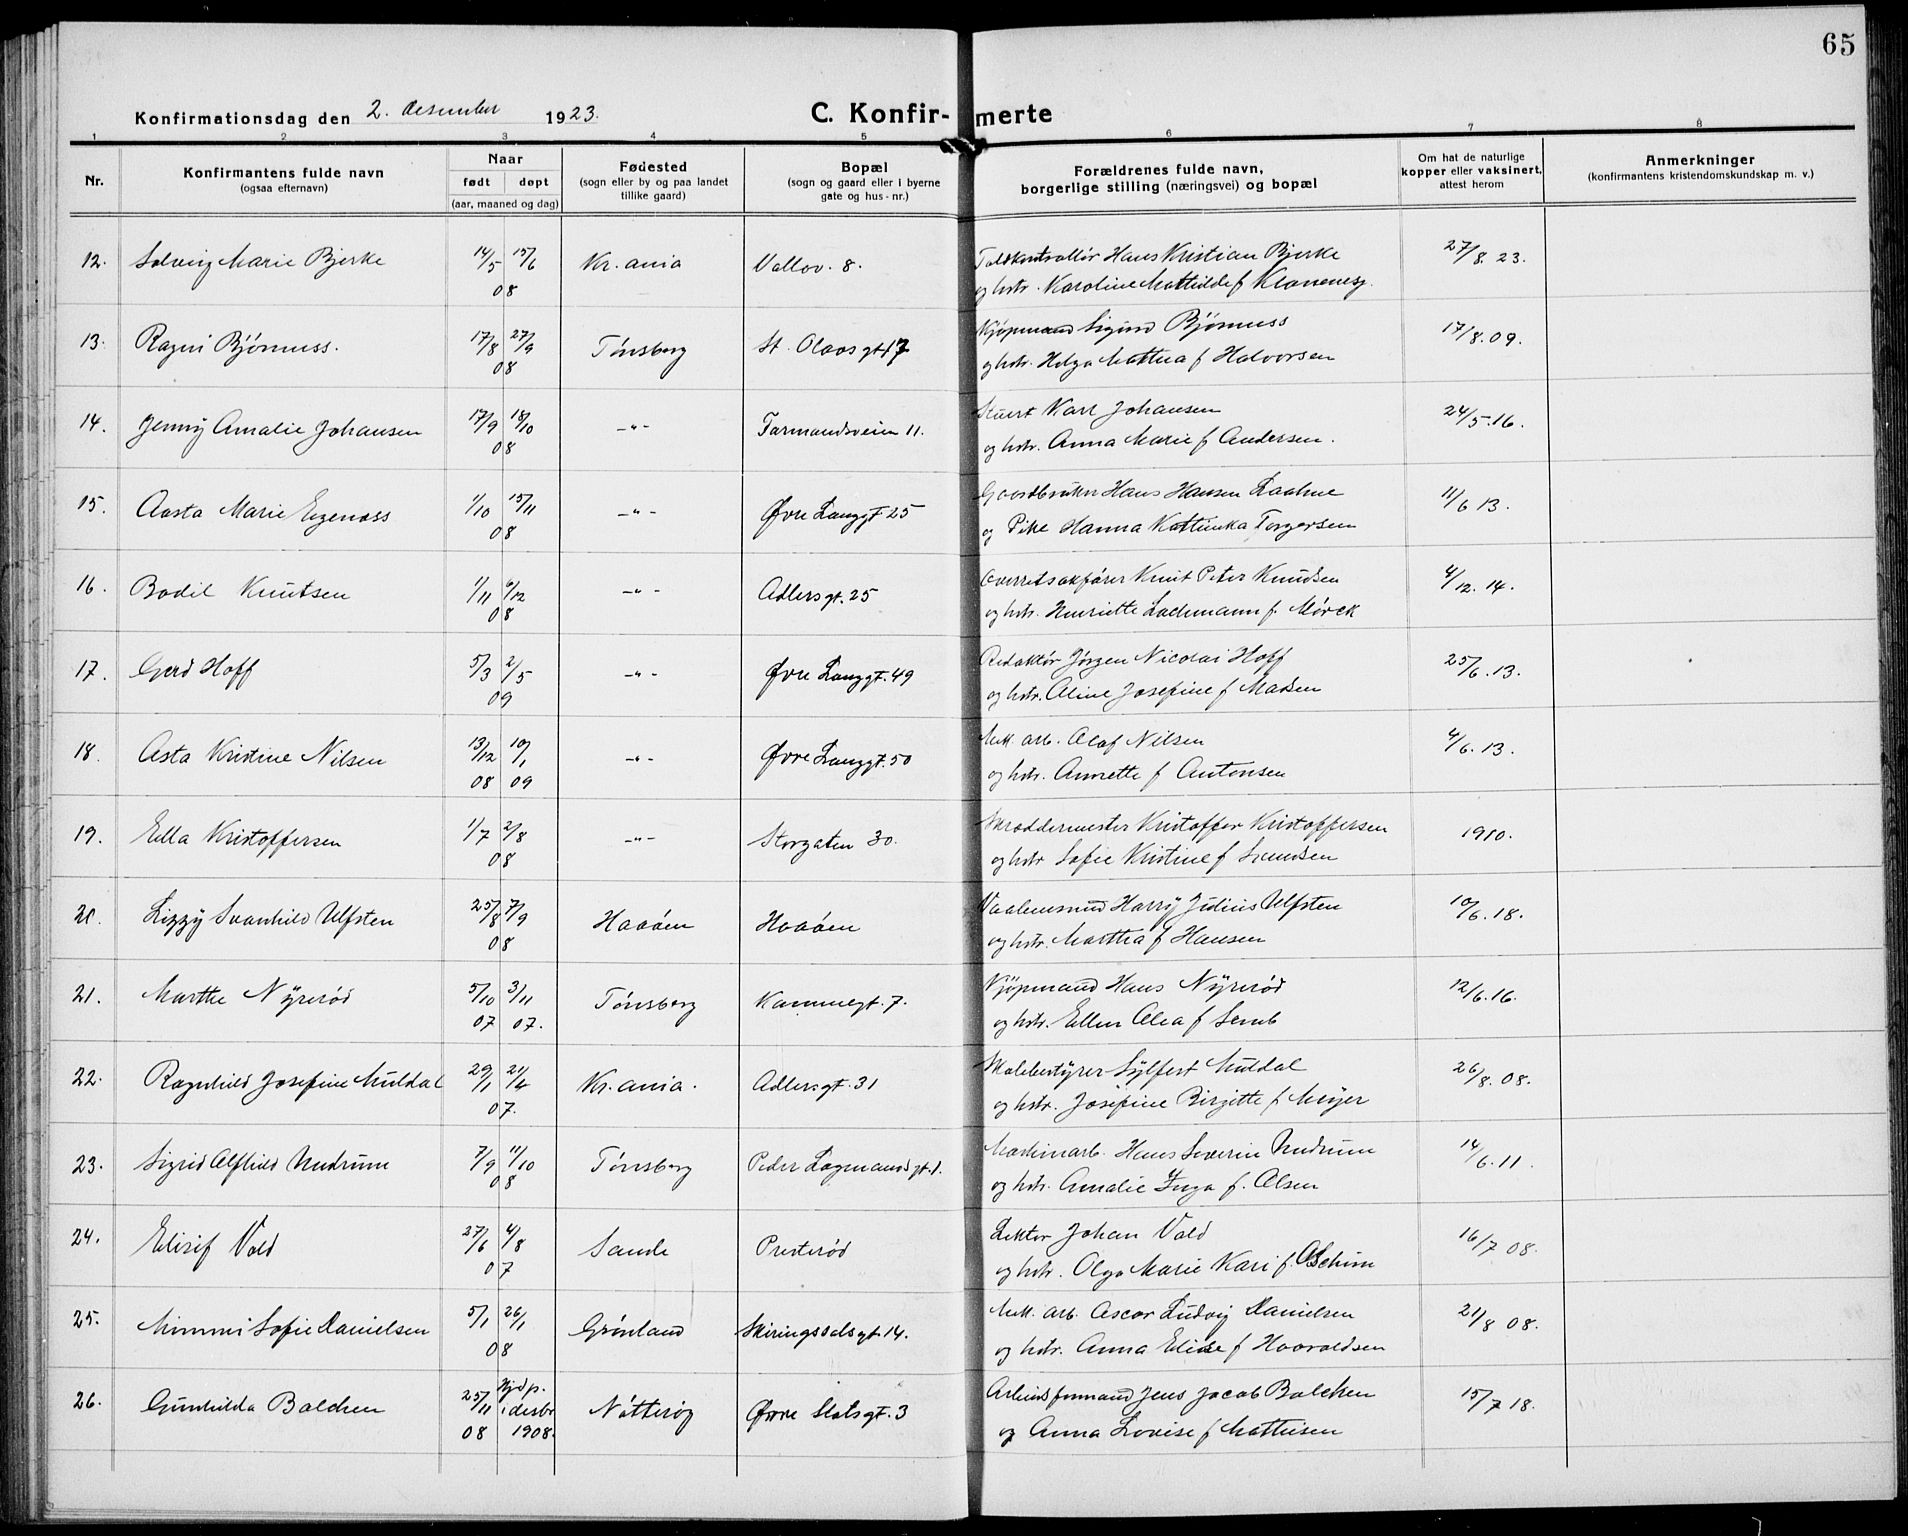 65
Konfirmationsdag den 2. desember 1923.
C. Konfirmerte
1 2 3 4 5 6 7 8
Nr.
Konfirmantens fulde navn
(ogsaa efternavn)
Naar
født døpt
(aar, maaned og dag)
Fødested
(sogn eller by og paa landet
tillike gaard)
Bopæl
(sogn og gaard eller i byerne
gate og hus-nr.)
Forældrenes fulde navn,
borgerlige stilling (næringsvei) og bopæl
Om hat de naturlige
kopper eller vaksinert,
attest herom
Anmerkninger
(konfirmantens kristendomskundskap m. v.)
12. Solveig Marie Bjerke 14/5 15/6 Kr.ania Vallöv. 8. Toldkontrollør Hans Kristian Bjerke 27/8. 23.
08 og hstr. Karoline Mathilde f
13. Ragni Bjørnuss. 17/8 27/9 Tønsberg St. Olavsgt 17 Kjøpmand Sigurd Bjørnuss 17/8.09.
08 og hstr. Helga Mathea f Halvorsen
14. Jenny Amalie Johansen 17/9 18/10 -"- Farmandsveien 11. Stuert Karl Johansen 24/5.16.
08 og hstr. Anna Marie f Andersen.
15. Aasta Marie Egenæss 1/10 15/11 -"- Øvre Langgt 25 Gaardbruker Hans Hansen 11/6 13.
08 og Pike Hanna Kathinka Torgersen
16. Bodil Knutsen 1/11 6/12 -"- Adlersgt. 25 Overretsakfører Knut Peter Knudsen 4/12. 14.
08 og hstr. Henriette Lademann f. Mørck
17. Gerd Hoff 5/3 2/5 -"- Øvre Langgt. 49 Redaktør Jørgen Nicolai Hoff 25/6.13.
09 og hstr. Aline Josefine f Madsen
18. Asta Kristine Nilsen 13/12 10/1 -"- Øvre Langgt. 50 Mek. arb. Olaf Nilsen 4/6.13.
08 09 og hstr. Annette f Antonsen
19. Ella Kristoffersen 1/7 2/8 -"- Storgaten 30. Skræddermester Kristoffer Kristoffersen 1910.
08 og hstr Sofie Kristine f
20. Lizzy Svanhild Ulfsten 25/8 7/9 Haaøen Haaøen Harry Julius Ulfsten 10/6.18.
08 og hstr. Martha f Hansen
21. Marthe Nyrerød 5/10 3/11 Tønsberg Kammegt. 7. Kjøpmand Hans Nyrerød 12/6.16.
07 07. og hstr. Ellen Alea f Semb
22. Ragnhild Josefine Muldal 29/1 21/4 Kr.ania. Adlersgt. 31 Skolebestyrer Sylfest Muldal 26/8. 08.
07. og hstr. Josefine Birgitte f Meyer
23. Sigrid Alfhild Undrum 7/9 11/10 Tønsberg Peder Lagmandsgt. 1. Maskinarb. Hans Severin Undrum 14/6.11.
08 og hstr. Amalie Inga f. Olsen
24. Elisif Vold 27/6 4/8 Sande Presterød Lektor Johan Vold 16/7 08.
07 og hstr. Olga Marie Kari f.
25. Mimmi Sofie Danielsen 5/1 26/1 Grønland Skiringssalsgt. 14. Mek. arb. Oscar Ludvig Danielsen 21/8 08.
08 og hstr. Anna Elise f Haavaldsen
26. Gunhilda Balchen 25/11 Hjdp. Nøtterøy Øvre Slotsgt. 3 Arbeidsformand Jens Jacob Balchen 15/7 18.
08 i desbr 1908. og Anna Lovise f Mathisen